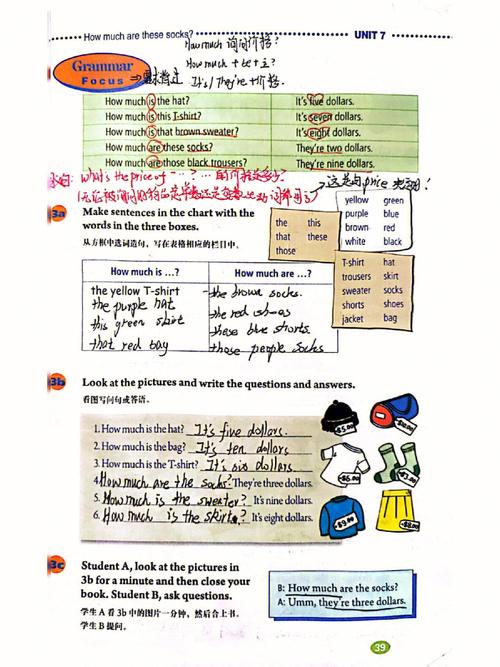 How much are these socks?
UNIT 7
How much 询问价格?
How much + be + 主?
Grammar
Focus
It's / They're + 价格.
How much is the hat? It's five dollars.
How much is this T-shirt? It's seven dollars.
How much is that brown sweater? It's eight dollars.
How much are these socks? They're two dollars.
How much are those black trousers? They're nine dollars.
What's the price of …?
3a
Make sentences in the chart with the
words in the three boxes.
从方框中选词造句,写在表格相应的栏目中。
the this
that these
those
yellow green
purple blue
brown red
white black
T-shirt hat
trousers skirt
sweater socks
shorts shoes
jacket bag
How much is …? How much are …?
the yellow T-shirt the brown socks.
the purple hat the red
this green these blue shorts.
that red bag those people socks
3b
Look at the pictures and write the questions and answers.
看图写问句或答语。
1. How much is the hat? It's five dollars.
2. How much is the bag? It's ten dollars
3. How much is the T-shirt? It's six dollars.
4. How much are the socks? They're three dollars.
5. How much is the sweater? It's nine dollars.
6. How much is the skirt? It's eight dollars.
$5.00
$10.00
$6.00
$3.00
$9.00
$8.00
3c
Student A, look at the pictures in
3b for a minute and then close your
book. Student B, ask questions.
学生 A 看 3b 中的图片一分钟,然后合上书。
学生 B 提问。
B: How much are the socks?
A: Umm, they're three dollars.
39